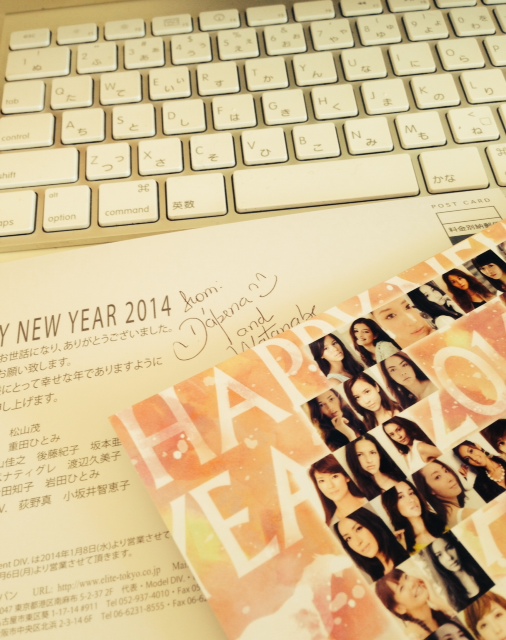 esc
tab
Q た
W て
E い
R す
T か
Y ん
U な
I に
O ら
P
control
A ち
S と
D し
F は
G き
H く
J ま
K の
L り
shift
Z つ
X さ
C そ
V ひ
B こ
N み
M も
caps
alt
option
command
英数
かな
POST CARD
料金別納郵便
Y NEW YEAR 2014
from.
Dápena
and
Watanabe
お世話になり、ありがとうございました。
お願い致します。
にとって幸せな年でありますように
し上げます。
松山茂
重田ひとみ
山佳之 後藤紀子 坂本亜
スナティグレ 渡辺久美子
田知子 岩田ひとみ
V. 荻野真 小坂井智恵子
ent DIV. は2014年1月8日(水)より営業させて
月6日(月)より営業させて頂きます。
パン URL: http://www.elite-tokyo.co.jp Mai
047 東京都港区南麻布 5-2-37 2F 代表・Model DIV.・
古屋市東区泉 1-17-14 #911 Tel 052-937-4010・Fax 0
大阪市中央区北浜 2-3-14 6F Tel 06-6231-8555・Fax 06-
HAPPY NEW
YEA
201